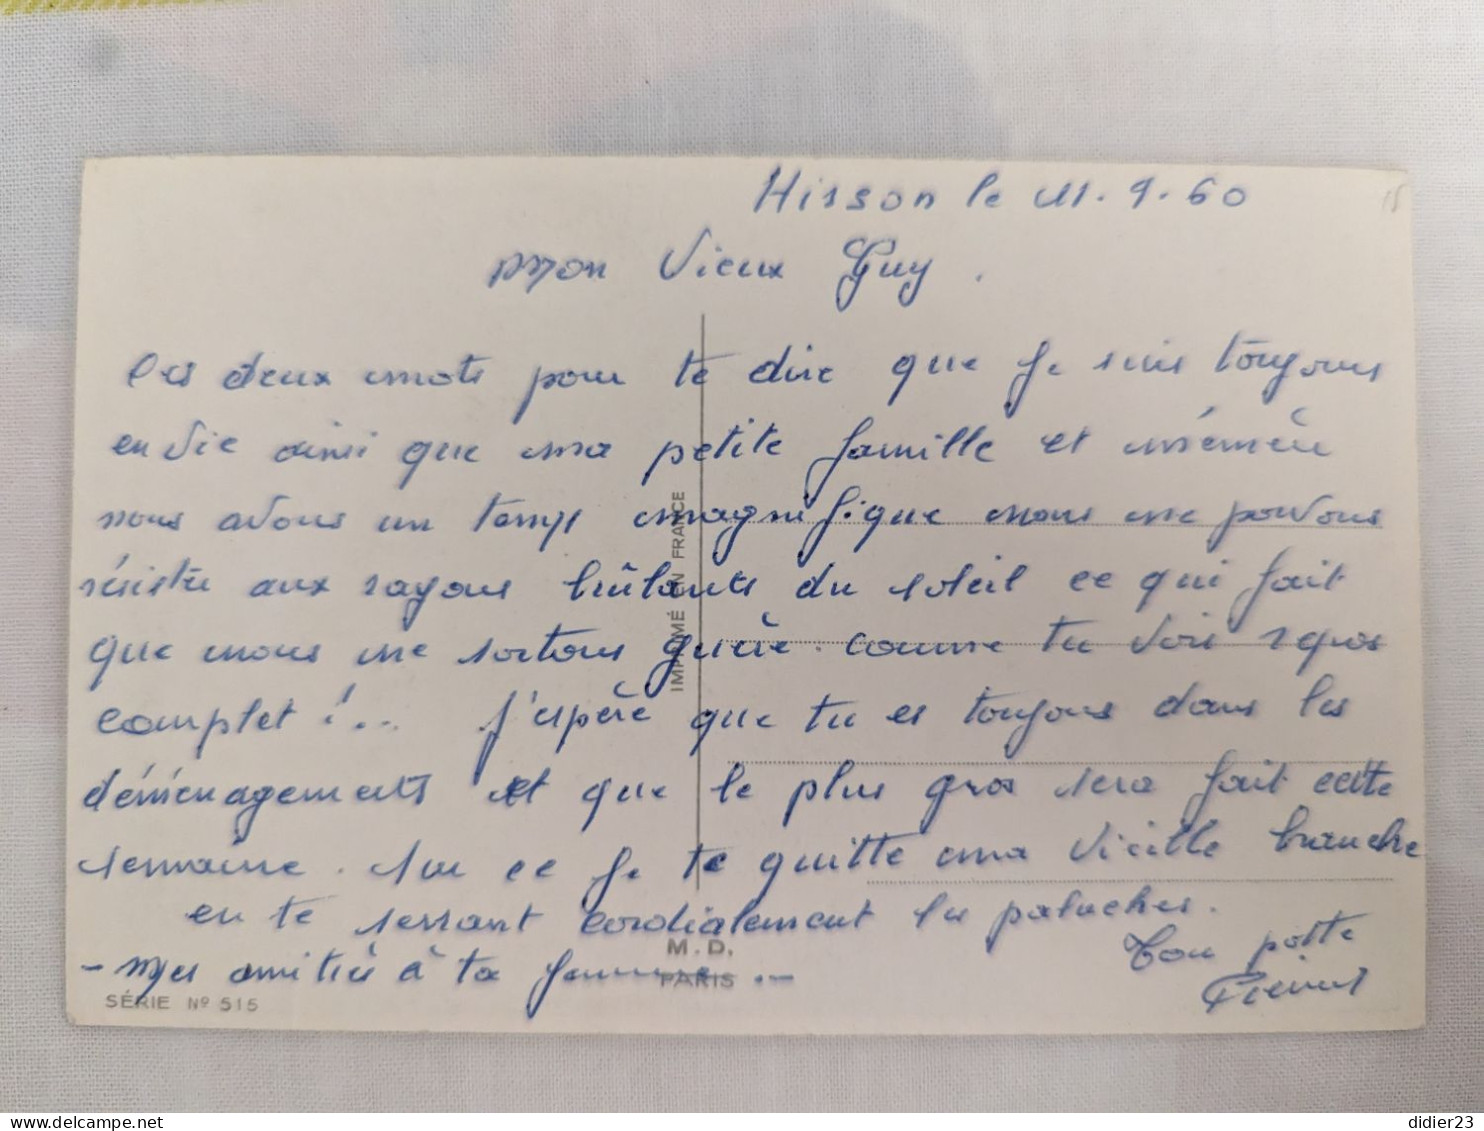 Hirson le 11.9.60
Mon Vieux Guy.
Ces deux mots pour te dire que je suis toujours
en Vie ainsi que ma petite famille et mémère
nous avons un temps magnifique nous ne pouvons
résister aux rayons brûlants du soleil ce qui fait
que nous ne sortons guère. comme tu vois repos
complet !... J'espère que tu es toujours dans les
déménagements et que le plus gros sera fait cette
semaine. Sur ce je te quitte ma vieille branche
en te serrant cordialement les paluches.
Ton potte
- Mes amitiés à ta femme . -
IMPRIMÉ EN FRANCE
M.D.
PARIS
SÉRIE Nº 515
didier23